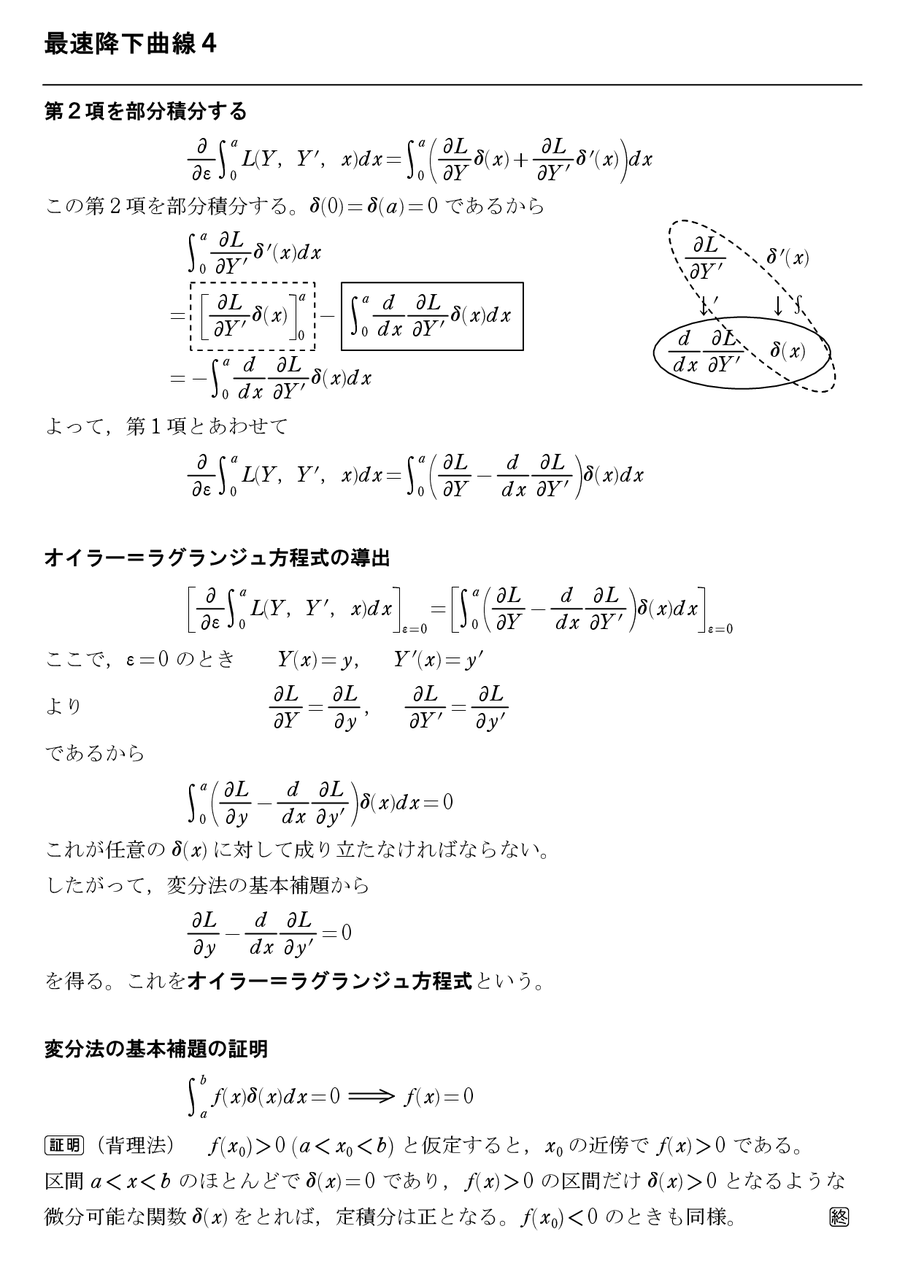 最速降下曲線4
第2項を部分積分する
∂/∂ε ∫₀ᵃ L(Y, Y′, x)dx = ∫₀ᵃ (∂L/∂Y δ(x) + ∂L/∂Y′ δ′(x))dx
この第2項を部分積分する。δ(0)=δ(a)=0 であるから
∫₀ᵃ ∂L/∂Y′ δ′(x)dx
= [∂L/∂Y′ δ(x)]₀ᵃ − ∫₀ᵃ d/dx ∂L/∂Y′ δ(x)dx
= −∫₀ᵃ d/dx ∂L/∂Y′ δ(x)dx
∂L/∂Y′ δ′(x)
↓′ ↓∫
d/dx ∂L/∂Y′ δ(x)
よって，第1項とあわせて
∂/∂ε ∫₀ᵃ L(Y, Y′, x)dx = ∫₀ᵃ (∂L/∂Y − d/dx ∂L/∂Y′)δ(x)dx
オイラー＝ラグランジュ方程式の導出
[∂/∂ε ∫₀ᵃ L(Y, Y′, x)dx]_{ε=0} = [∫₀ᵃ (∂L/∂Y − d/dx ∂L/∂Y′)δ(x)dx]_{ε=0}
ここで，ε=0 のとき Y(x)=y, Y′(x)=y′
より ∂L/∂Y = ∂L/∂y, ∂L/∂Y′ = ∂L/∂y′
であるから
∫₀ᵃ (∂L/∂y − d/dx ∂L/∂y′)δ(x)dx = 0
これが任意の δ(x) に対して成り立たなければならない。
したがって，変分法の基本補題から
∂L/∂y − d/dx ∂L/∂y′ = 0
を得る。これをオイラー＝ラグランジュ方程式という。
変分法の基本補題の証明
∫ₐᵇ f(x)δ(x)dx = 0 ⟹ f(x) = 0
証明（背理法） f(x₀)>0 (a<x₀<b) と仮定すると，x₀ の近傍で f(x)>0 である。
区間 a<x<b のほとんどで δ(x)=0 であり，f(x)>0 の区間だけ δ(x)>0 となるような
微分可能な関数 δ(x) をとれば，定積分は正となる。f(x₀)<0 のときも同様。 終